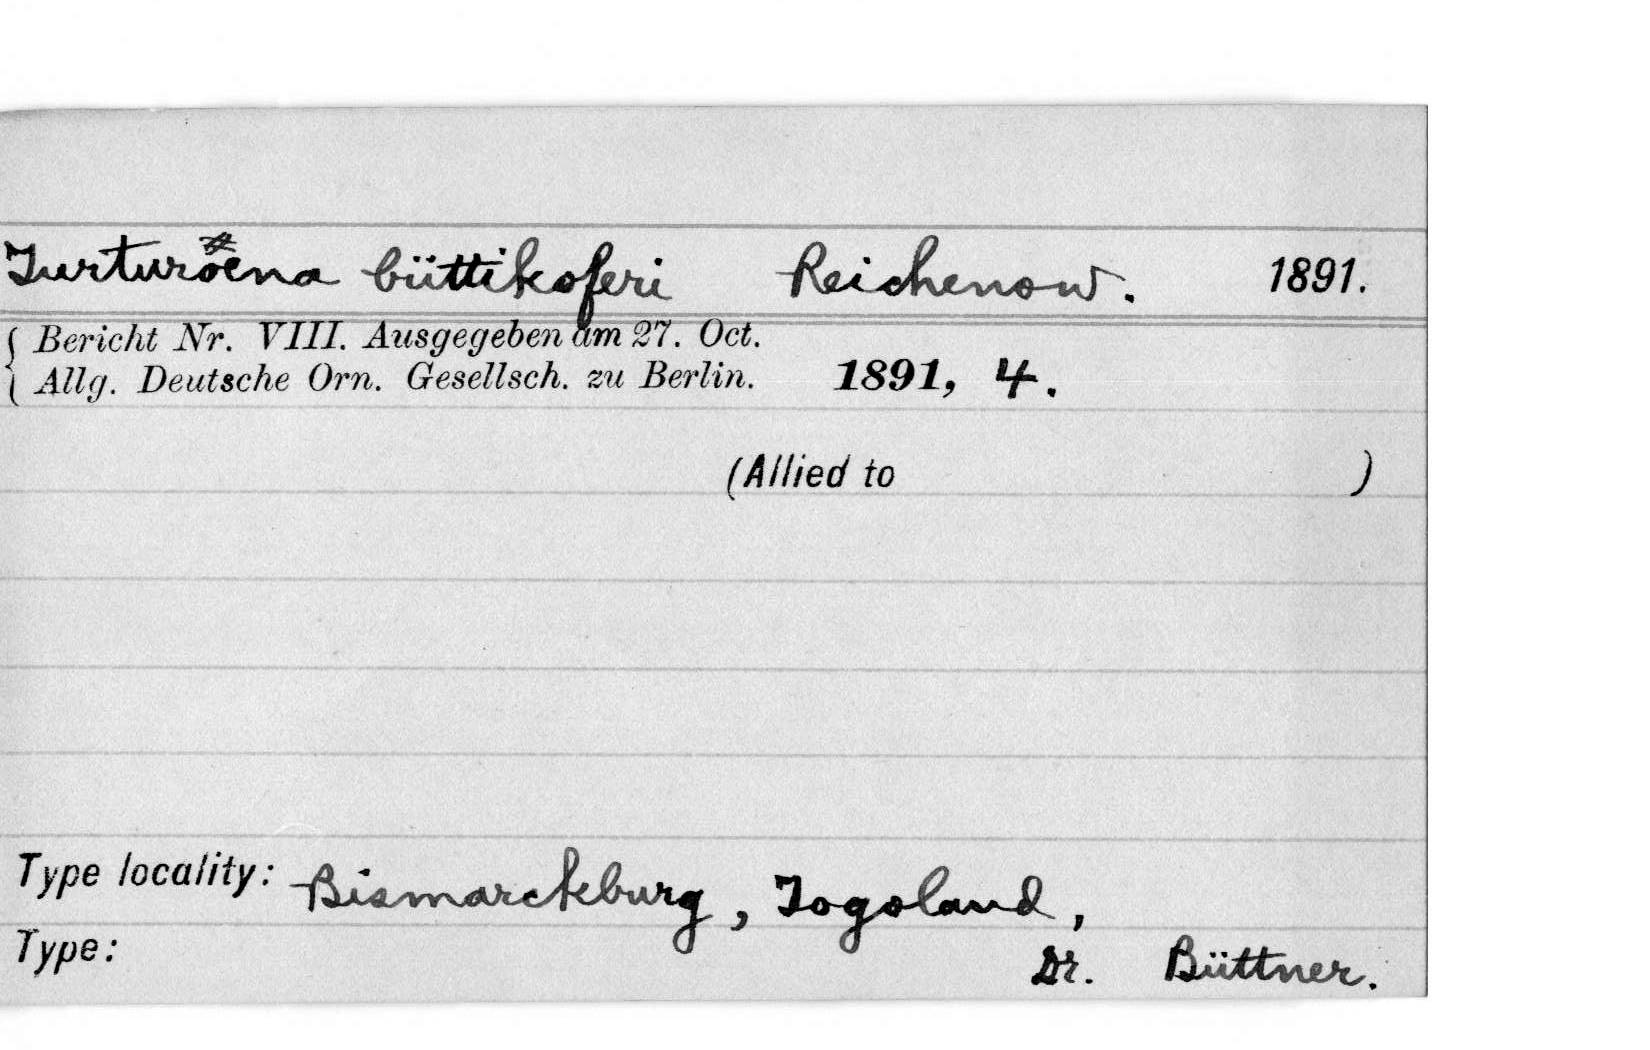 Turturoena büttikoferi Reichenow. 1891.
Bericht Nr. VIII. Ausgegeben am 27. Oct.
Allg. Deutsche Orn. Gesellsch. zu Berlin. 1891, 4.
(Allied to )
Type locality: Bismarckburg, Togoland,
Type: Dr. Büttner.